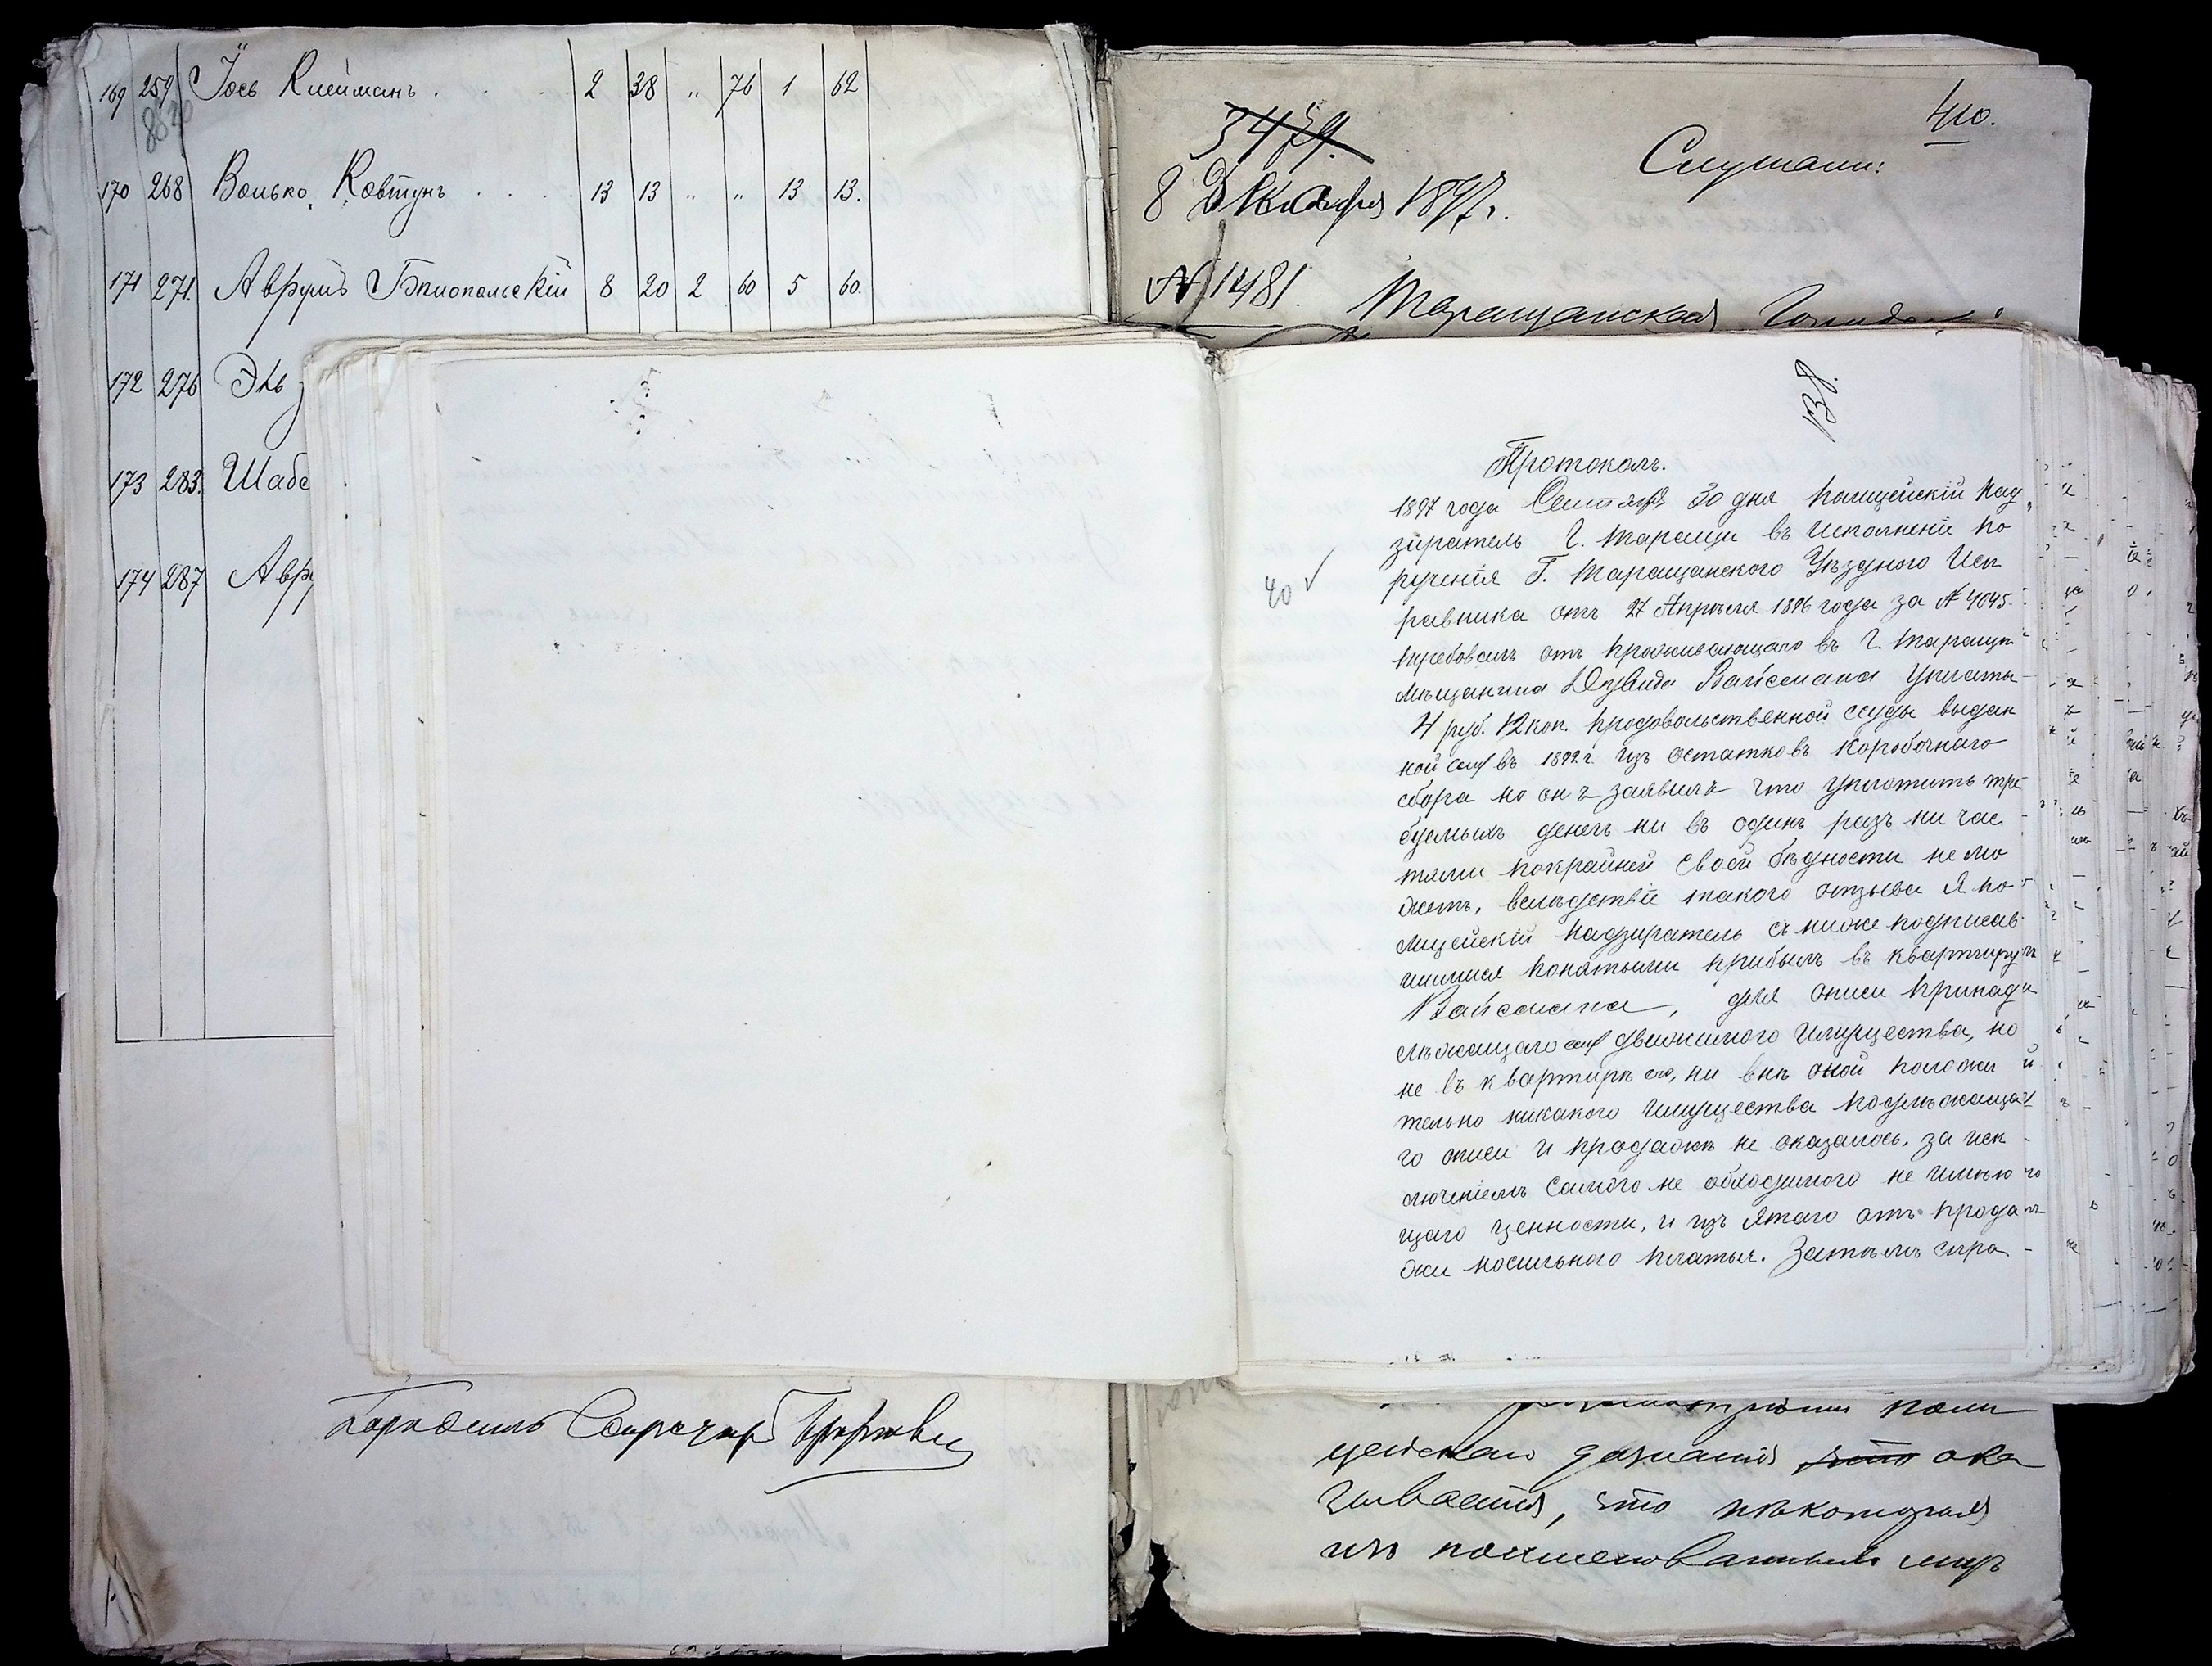 169 259 Іось Клейманъ . . . 2 38 „ 76 1 62
170 268 Волько Ковтунъ . . . 13 13 „ „ 13 13.
171 271. Аврумъ Бялопольскій 8 20 2 60 5 60.
172 276
173 283. Шаб
174 287 Авр
410.
Слушали:
8 Декабря 1897 г.
№ 1481.
Таращанская
138.
Протоколъ.
1897 года Сентября 30 дня Полицейскій Над
зиратель г. Таращи въ исполненіе по
рученія Г. Таращанского Уѣзднаго Исп
равника отъ 27 Апрѣля 1896 года за № 4045.
требовалъ отъ проживающаго въ г. Таращѣ
мѣщанина Давида Вайсмана уплаты
4 руб. 12 коп. продовольственной ссуды выдан
ной ему въ 1892 г. изъ остатковъ коробочнаго
сбора но онъ заявилъ что уплотить тре
буемыхъ денегъ ни въ одинъ разъ ни час
тями покрайней своей бѣдности не мо
жетъ, вслѣдствіе такого отзыва Я по
лицейскій Надзиратель съ ниже подписав
шимися понятыми прибылъ въ квартиру
Вайсмана, для описи принад
лѣжащаго ему движимого имущества, но
не въ квартирѣ его, ни внѣ оной положи
тельно никакого имущества подлѣжаща
го описи и продажѣ не оказалось, за иск
люченіемъ самого не обходимого не имѣю
щаго ценности, и изъятаго отъ прода
жи носильного платья. Затѣмъ спро
40 ✓
поли
цейскаго дознанія ока
зывается, что нѣкоторыя
изъ поименованныхъ лицъ